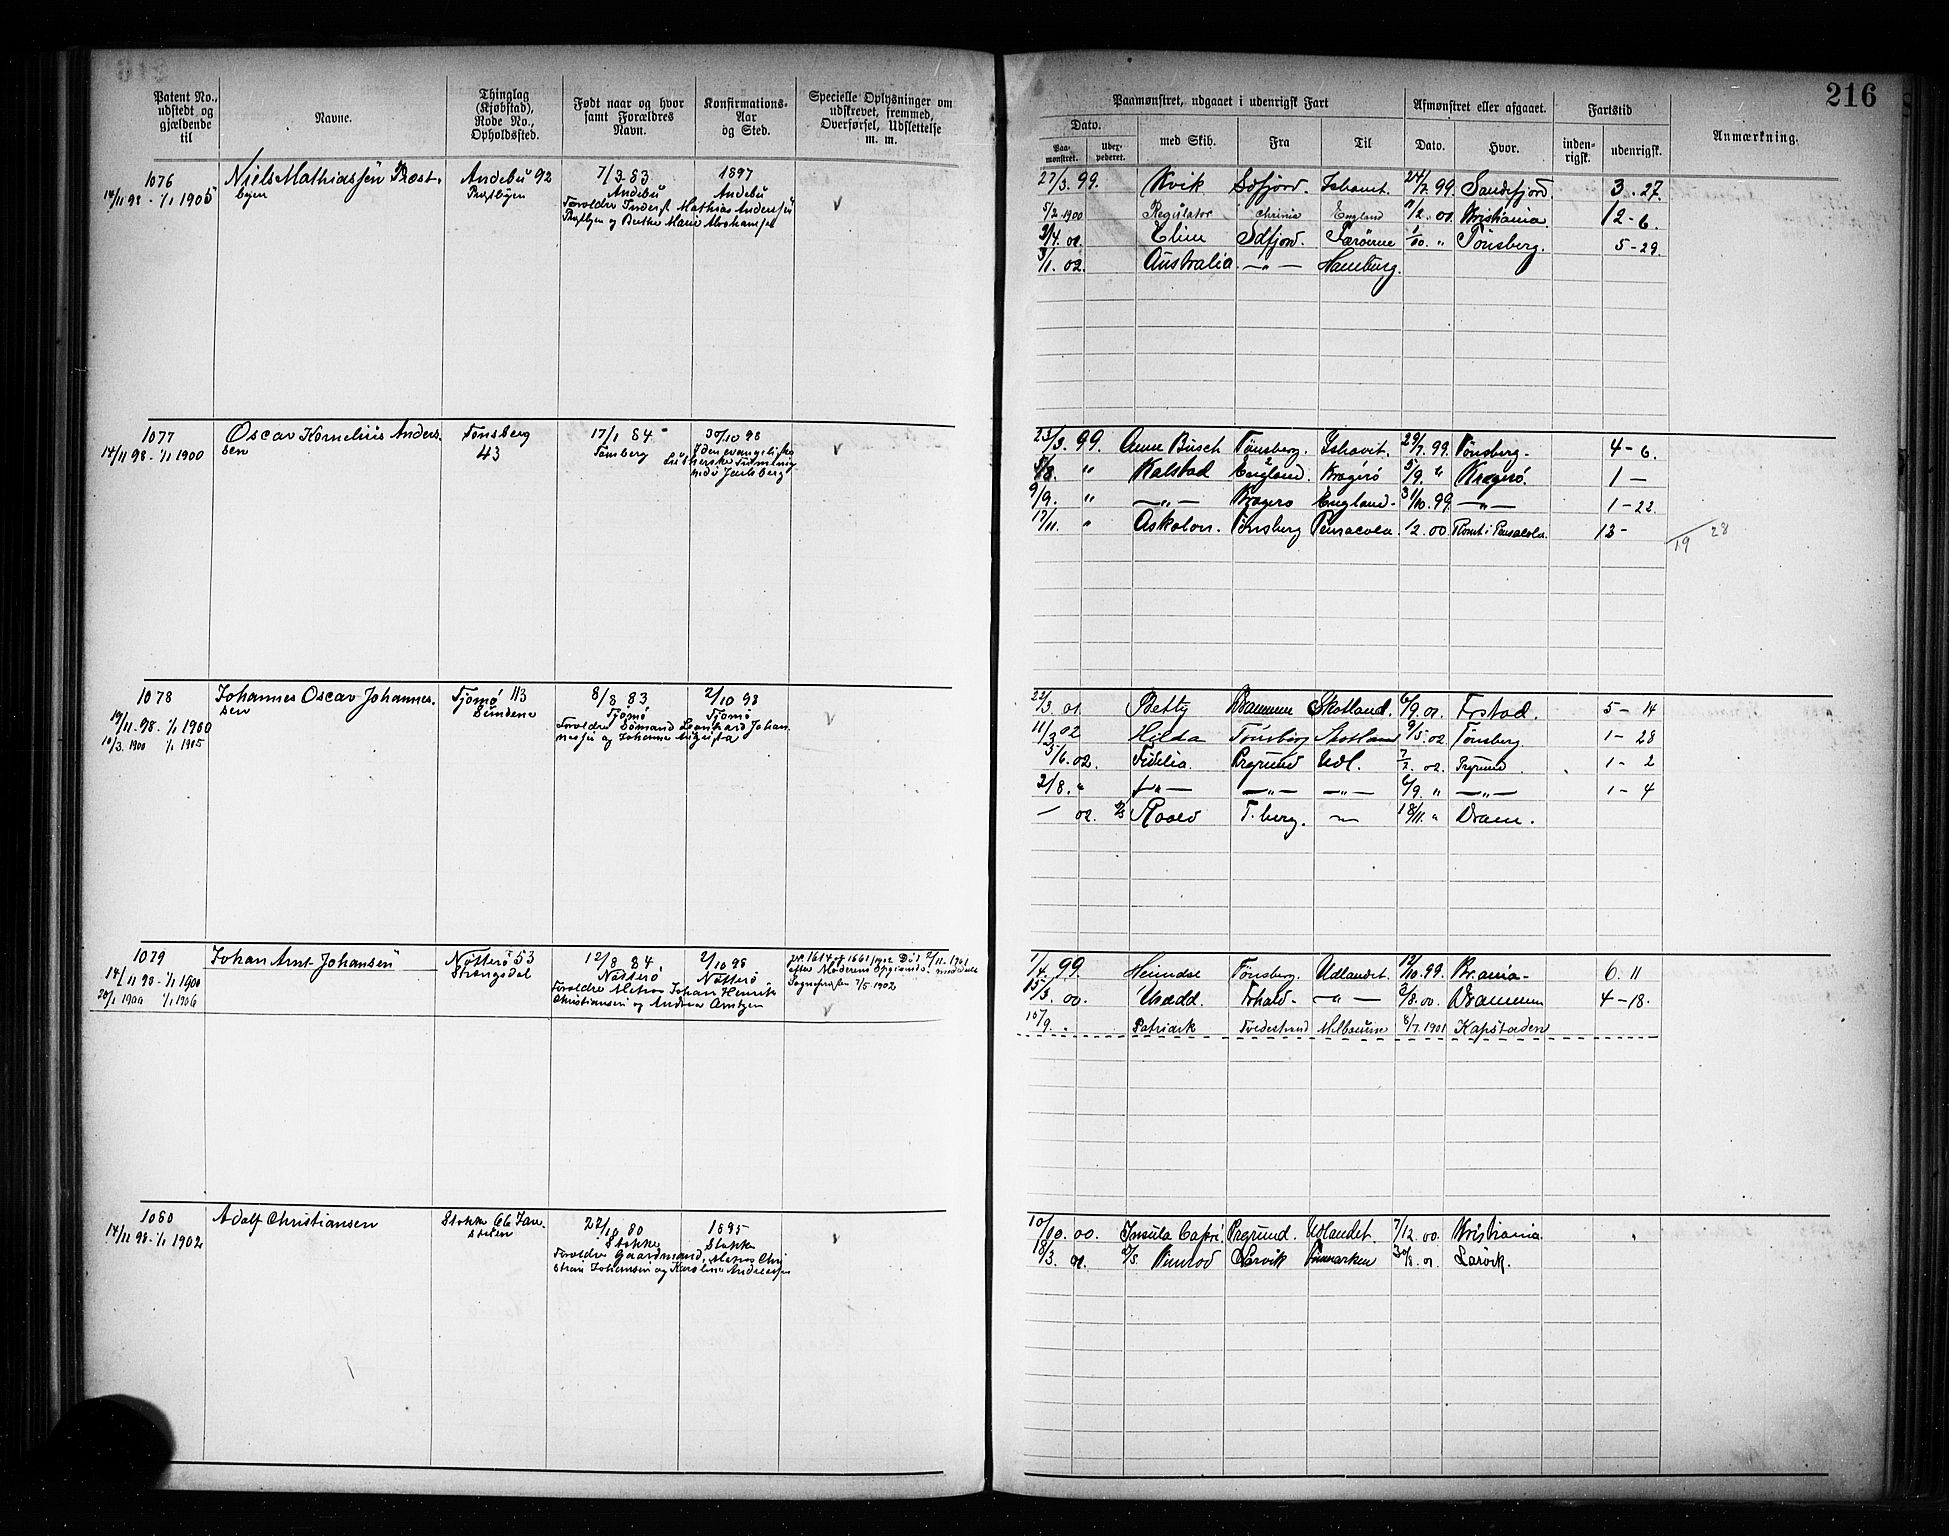 216
Patent No., udstedt og gjældende til
Navne.
Thinglag (Kjøbstad), Rode No., Opholdssted.
Født naar og hvor samt Forældres Navn.
Konfirmations-Aar og Sted.
Specielle Oplysninger om udskrevet, fremmed, Overførsel, Udslettelse m. m.
Paamønstret, udgaaet i udenrigsk Fart
Dato.
Paa-mønstret.
med Skib.
Fra
Til
Afmønstret eller afgaaet.
Dato.
Hvor.
Fartstid
inden-rigsk.
udenrigsk.
Anmærkning.
1076
14/11 98 - 1/1 1905
Niels Mathiassen Præst-
byen
Andebu 92
Præstbyen
7/3 83
Andebu
Mathias Andersen
Præstbyen og Berthe Marie Abrahamsen
1897
Andebu
27/3. 99. Kvik Sdfjord. Ishavet. 24/7. 99. Sandefjord. 3 - 27.
5/2 1900 Regulator " Chrinia England 11/2. 01. Kristiania 12 - 6.
3/4. 01. Elim Sdfjord. Færöerne 1/10. " Tönsberg. 5 - 29.
3/1. 02. Australia — " — Hamburg.
1077
14/11 98 - 1/1 1900
Oscar Kornelius Anders-
sen
Tønsberg
43
17/1 84
Tønsberg
30/10 98
I den evangelisk
Lutherske
Jarlsberg
23/3. 99. Anne Busch Tønsberg. Ishavet. 29/7. 99. Tønsberg - 4 - 6.
5/8. " Kalstad England. Kragerö 5/9. " Kragerö. 1 —
9/9. " — " — Kragerø England. 31/10. 99. — " — 1 - 22.
17/11. " Askalon. Tønsberg Pensacola 12. 00 Rømt i Pensacola. 13 -
19 28
1078
14/11. 98. - 1/1 1900
10/3. 1900 1/1 1905
Johannes Oscar Johannes-
sen
Tjømø 113
Sundene
8/8 83
Tjømø
Forældre Sømand Leonhard Johan
nessen og Johanne Augusta
2/10 98
Tjømø
22/3. 01. Betty Drammen Skotland. 6/9. 01. Frstad. 5 - 14
11/3 02 Hilda Tønsberg Skotland 9/5. 02. Tønsberg. 1 - 28
5/6. 02. Fidelia. Prgrund Udl. 7/7. 02. Prgrund. 1 - 2
2/8. " — " — — " — — " — 6/9. " — " — 1 - 4
— 02. Roald T.berg. — 18/11. " Dram.
1079
14/11 98 - 1/1 1900
20/1 1900 1/1 1906
Johan Arnt Johansen
Nøtterø 53
Strengsdal
12/8 84
Nøtterø
Forældre Matros Johan Henrik
Christiansen og Andrea Arntzen
2/10 98
Nøtterø
efter Moderens Opgivende
7/5 1902
7/4. 99. Heimdal Tønsberg. Udlandet. 19/10. 99. Krania - 6. 11
15/3. 00. Uredd. Frhald - — " — 2/8. 00. Drammen 4 - 18.
10/9. " Patriark Tvedestrand Melbourne 8/7. 1901 Kapstaden
1080
14/11 98 - 1/1 1902
Adolf Christiansen
Stokke
22/10 80
Stokke
Forældre Gaardmand, Matros Chri
stian Johansen og Karoline Andersen
1895
Stokke
10/10. 00. Insula Capri. Prgrund. Udlandet. 7/12. 00. Kristiania.
18/3. 01. Nimrod Larvik Finmarken 30/8. 01. Larvik.